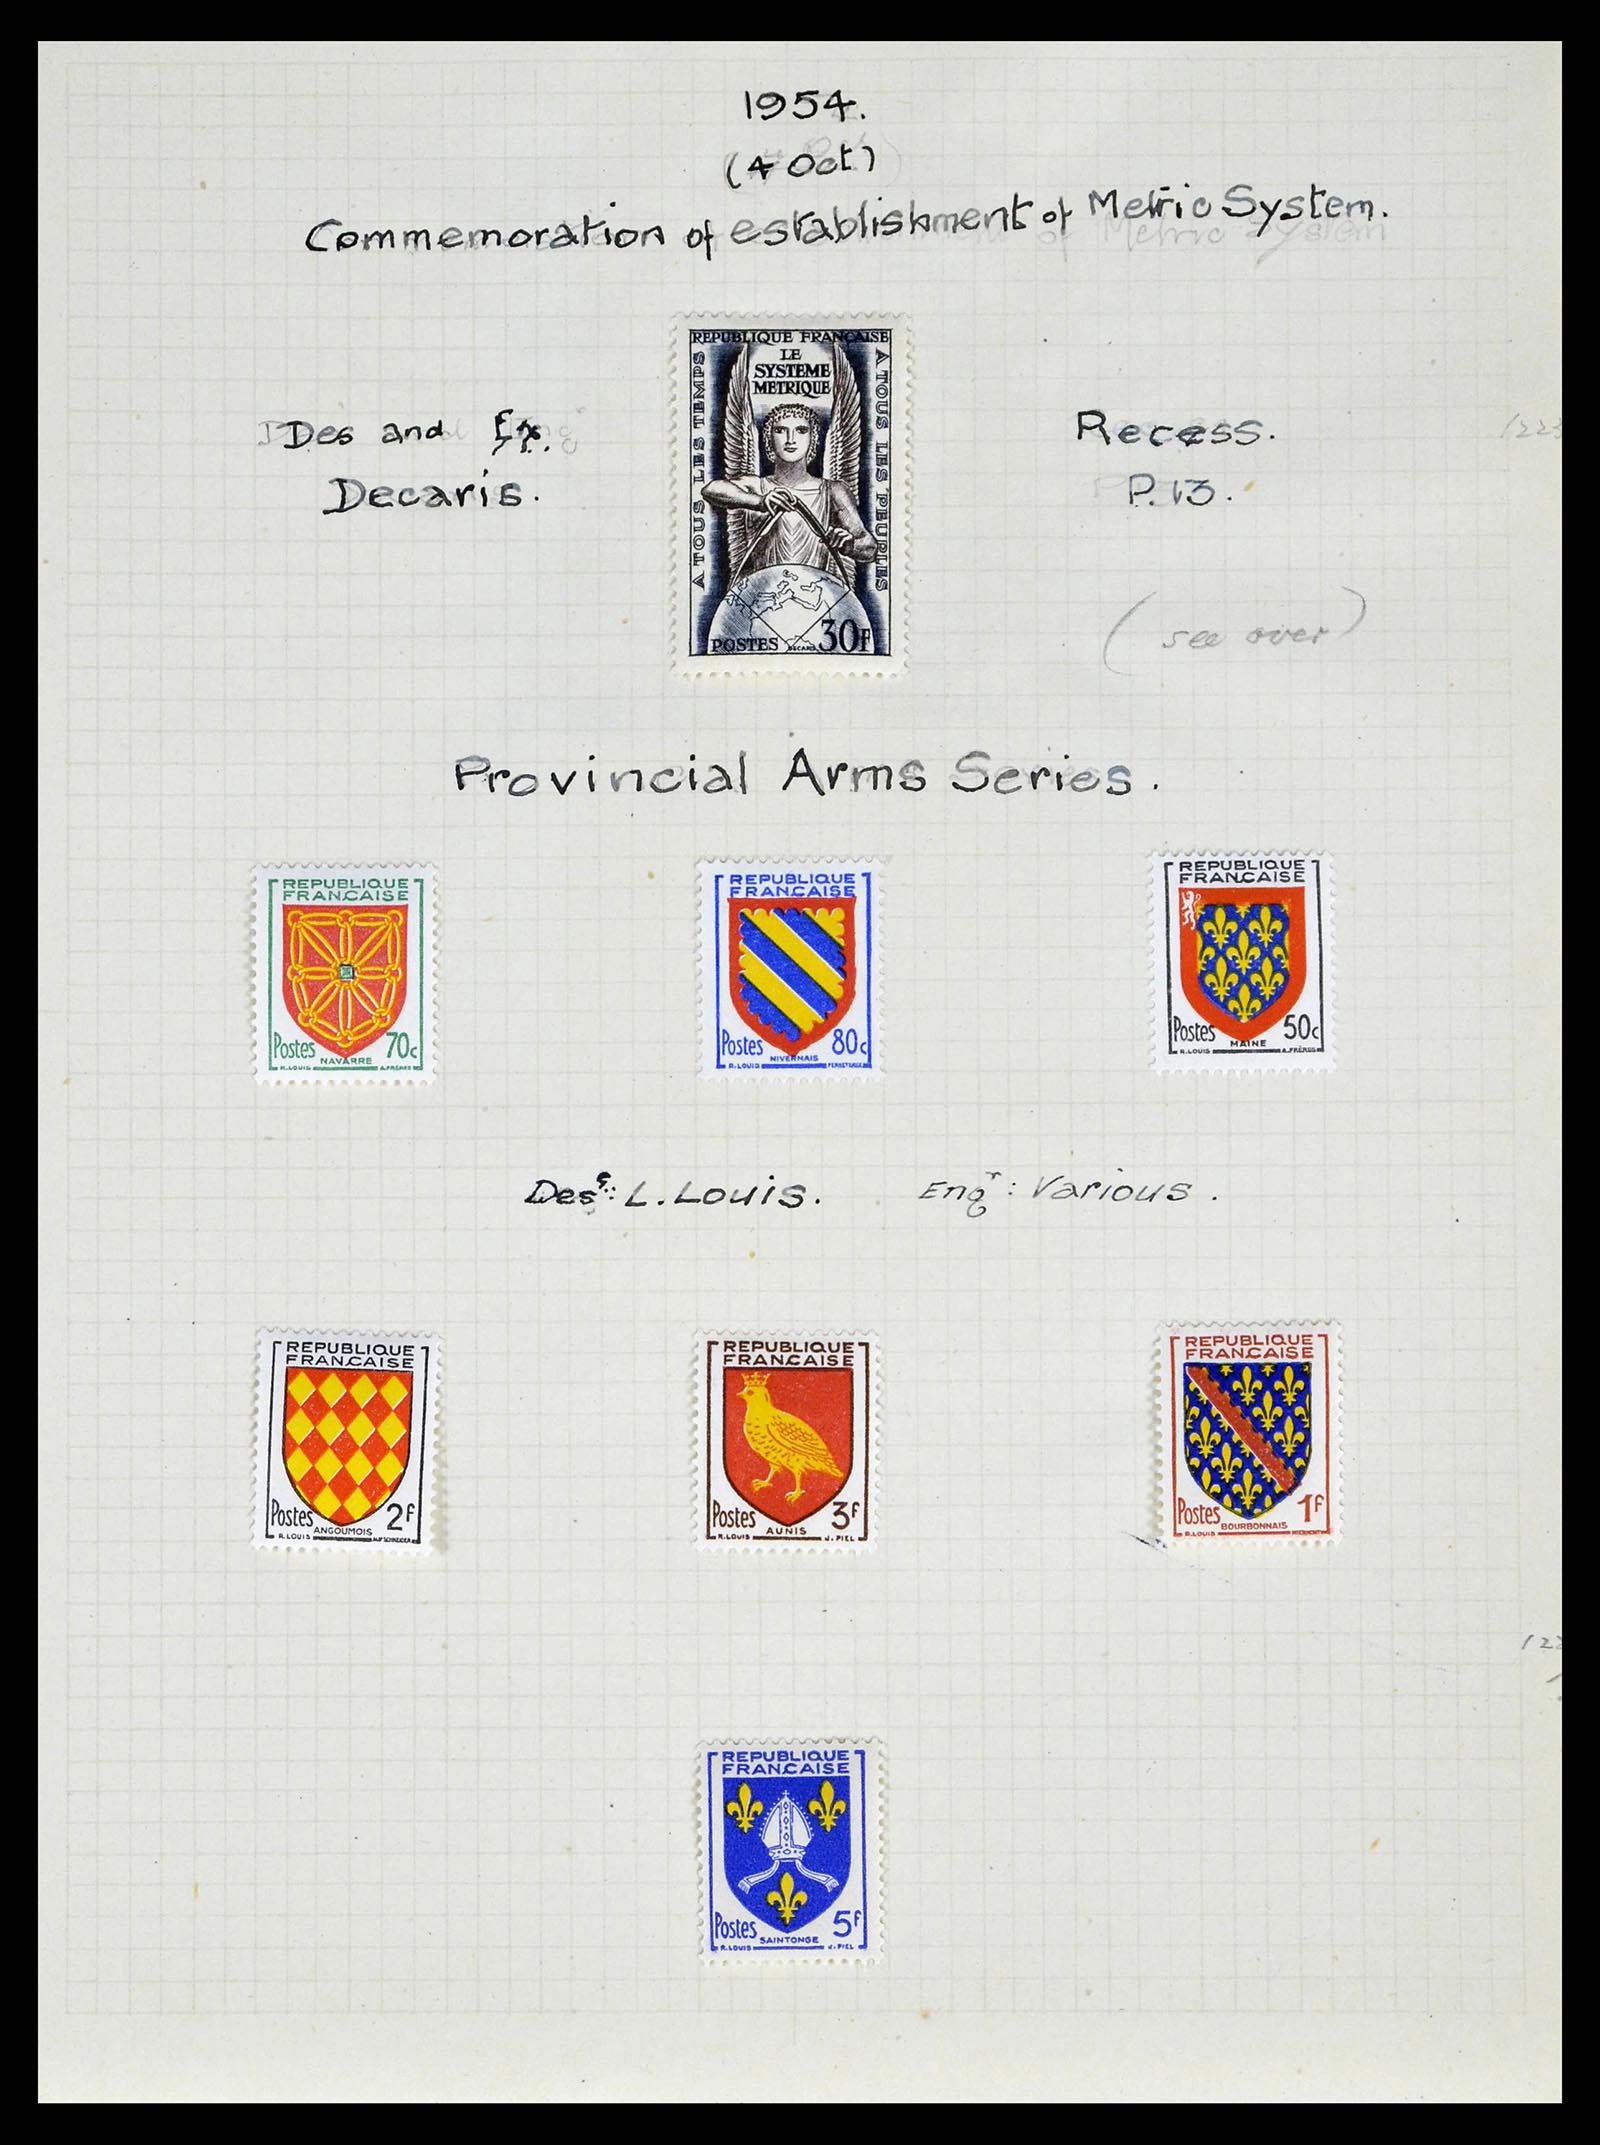 1954.
(4 Oct)
Commemoration of establishment of Metric System.
REPUBLIQUE FRANÇAISE
LE
SYSTEME
METRIQUE
A TOUS LES TEMPS
A TOUS LES PEUPLES
POSTES DECARIS 30F
Des and
Decaris.
Recess.
P. 13.
(see over)
Provincial Arms Series.
REPUBLIQUE
FRANÇAISE
Postes 70c
NAVARRE
R. LOUIS A. FRÈRES
REPUBLIQUE
FRANÇAISE
Postes 80c
NIVERNAIS
R. LOUIS
REPUBLIQUE
FRANÇAISE
Postes 50c
MAINE
R. LOUIS A. FRÈRES
Des L. Louis. Engr: Various.
REPUBLIQUE
FRANÇAISE
Postes 2F
ANGOUMOIS
R. LOUIS
REPUBLIQUE
FRANÇAISE
Postes 3F
AUNIS
R. LOUIS J. PIEL
REPUBLIQUE
FRANÇAISE
Postes 1F
BOURBONNAIS
R. LOUIS
REPUBLIQUE
FRANÇAISE
Postes 5F
SAINTONGE
R. LOUIS J. PIEL